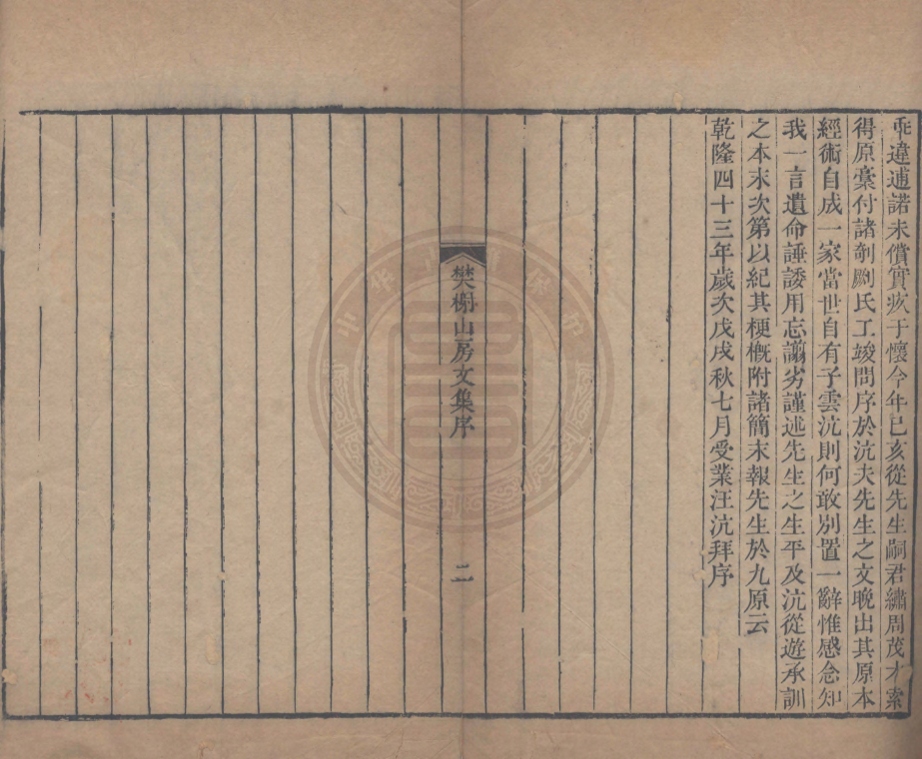 乖違逋諾未償實疚于懷今年己亥從先生嗣君繡周茂才索
得原稾付諸剞劂氏工竣問序於沆夫先生之文晚出其原本
經術自成一家當世自有子雲沆則何敢別置一辭惟感念知
我一言遺命諈諉用忘譾劣謹述先生之生平及沆從遊承訓
之本末次第以紀其梗槪附諸簡末報先生於九原云
乾隆四十三年歲次戊戌秋七月受業汪沆拜序
樊榭山房文集序
二